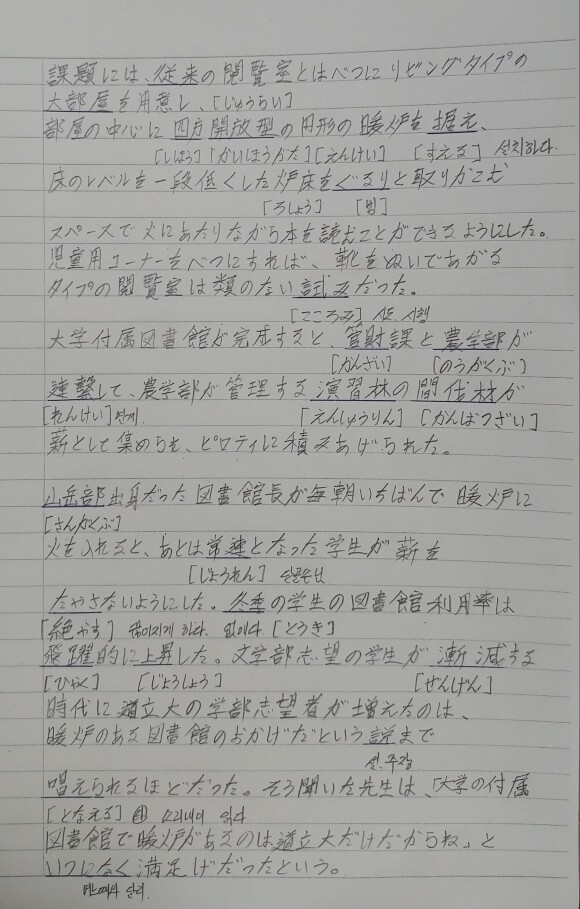 課題には、従来の閲覧室とはべつにリビングタイプの
大部屋を用意し、[じゅうらい]
部屋の中心に四方開放型の円形の暖炉を据え、
[しほう]「かいほうがた][えんけい] [すえる] 설치하다.
床のレベルを一段低くした炉床をぐるりと取りかこむ
[ろしょう] [빙]
スペースで火にあたりながら本を読むことができるようにした。
児童用コーナーをべつにすれば、靴をぬいであがる
タイプの閲覧室は類のない試みだった。
[こころみ] 시도, 시행
大学付属図書館が完成すると、管財課と農学部が
[かんざい] [のうがくぶ]
連繫して、農学部が管理する演習林の間伐材が
[れんけい] 연계. [えんしゅうりん] [かんばつざい]
薪として集められ、ピロティに積みあげられた。
山岳部出身だった図書館長が毎朝いちばんで暖炉に
[さんがくぶ]
火を入れると、あとは常連となった学生が薪を
[じょうれん] 단골손님
たやさないようにした。冬季の学生の図書館利用率は
[絶やす] 끊어지게 하다. 없애다 [とうき]
飛躍的に上昇した。文学部志望の学生が漸減する
[ひやく] [じょうしょう] [ぜんげん]
時代に道立大の学部志望者が増えたのは、
暖炉のある図書館のおかげだという説まで
설. 주장
唱えられるほどだった。そう聞いた先生は、「大学の付属
[となえる] 소리내어 읽다
図書館で暖炉があるのは道立大だけだからね」と
いつになく満足げだったという。
여느때와 달리.